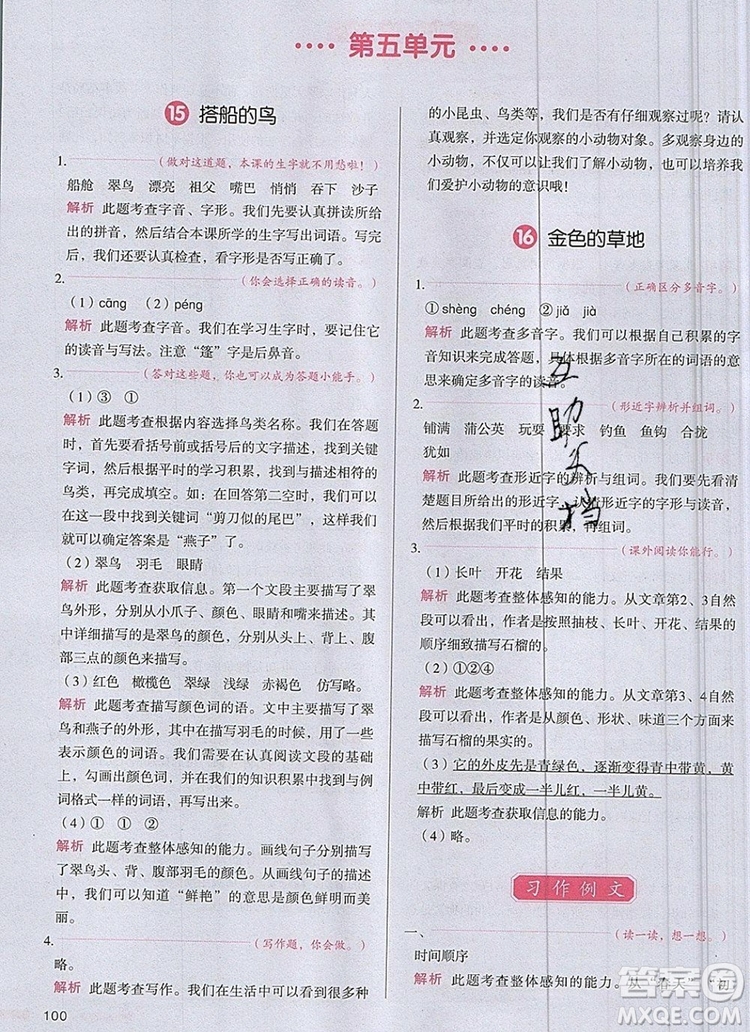 ···· 第五单元 ····
15 搭船的鸟
1.（做对这道题，本课的生字就不用愁啦！）
船舱 翠鸟 漂亮 祖父 嘴巴 悄悄 吞下 沙子
解析 此题考查字音、字形。我们要认真拼读所给
出的拼音，然后结合本课所学的生字写出词语。写完
后，还要认真检查，看字形是否已经写正确。
2.（你会选择正确的读音。）
（1）cāng （2）péng
解析 此题考查字音。我们在学习生字时，要记住它
的读音与写法。注意“篷”字是后鼻音。
3.（答对这些题，你也可以成为答题小能手。）
（1）③ ①
解析 此题考查根据内容选择鸟类名称。我们在答题
时，首先要看括号前或括号后的文字描述，找到关键
字词，然后根据平时的学习积累，找到与描述相符的
鸟类，再填空。如：在回答第二空时，我们可以从描
述中找出关键词“剪刀似的尾巴”，这样我们就可以
确定答案是“燕子”了。
（2）翠鸟 羽毛 眼睛
解析 此题考查获取信息。第一个文段主要描写了翠
鸟外形，分别从小爪子、颜色、眼睛和嘴来描述。其
中详细描写的是翠鸟的颜色，分别从头上、背上、腹
部三点的颜色描写。
（3）红色 橄榄色 翠绿 浅绿 赤褐色 仿写略。
解析 此题考查颜色的词语。文中主要是描写翠
鸟和燕子的外形，其中在描写羽毛的时候，用了大量
描写颜色的词语。我们需要在认真阅读文段的基础
上，勾画出颜色词，并在我们的知识积累中找到与例
词格式一样的词语，进行仿写。
（4）① ① ②
解析 此题考查整体感知的能力。画线句子分别描写
了翠鸟头、背、腹部羽毛的颜色。从画线句子描写的
颜色中，我们可以知道“鲜艳”的意思是鲜明而美
丽。
4.（写作题，你会做。）
略。
解析 此题考查写作。我们在生活中可以看到很多种
100
的小昆虫、鸟类等，我们是否有仔细观察过呢？请认
真观察，并选定你要观察的小动物对象。多观察身边
的小动物，不仅让我们了解小动物，也可以培养我们
爱护小动物的意识哦！
16 金色的草地
1.（正确区分多音字。）
①shèng chéng ②jiǎ jià
解析 此题考查多音字。我们要根据自己积累的字
音知识来完成答题，具体根据多音字所在的词语的意
思来确定多音字的读音。
2.（形近字辨析并组词。）
铺满 蒲公英 玩耍 要求 钓鱼 鱼钩 合拢
犹如
解析 此题考查形近字的辨析与组词。我们要先看清
楚题目所出的汉字，认真辨析形近字的字形与读音，
然后根据我们平时的积累，再组词。
3.（课外阅读你能行。）
（1）长叶 开花 结果
解析 此题考查整体感知的能力。从文章第2、3自
然段，我们可以看出，作者是按照抽枝、长叶、开花的
顺序细致描写石榴的。
（2）①②④
解析 此题考查整体感知的能力。从文章第3、4自
然段，我们可以看出，作者是从颜色、形状、味道三个
方面描写石榴的果实的。
（3）它的外皮先是青绿色，逐渐变得青中带黄，黄
中带红，最后变成一半儿红，一半儿黄。
解析 此题考查获取信息的能力。
（4）略。
习作例文
一、（读一读，想一想。）
时间顺序
解析 此题考查整体感知的能力。从“春天”“初
互助文档
答案圈
MXQE.COM